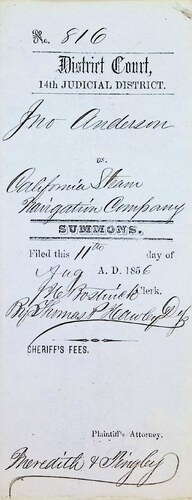 No. 816
District Court,
14th JUDICIAL DISTRICT.
Jno Anderson
vs.
California Steam
Navigation Company
SUMMONS.
Filed this 11th day of
Aug A. D. 1856
Clerk.
By Thomas P Hawley Dy
SHERIFF'S FEES.
Plaintiff's Attorney.
Meredith &